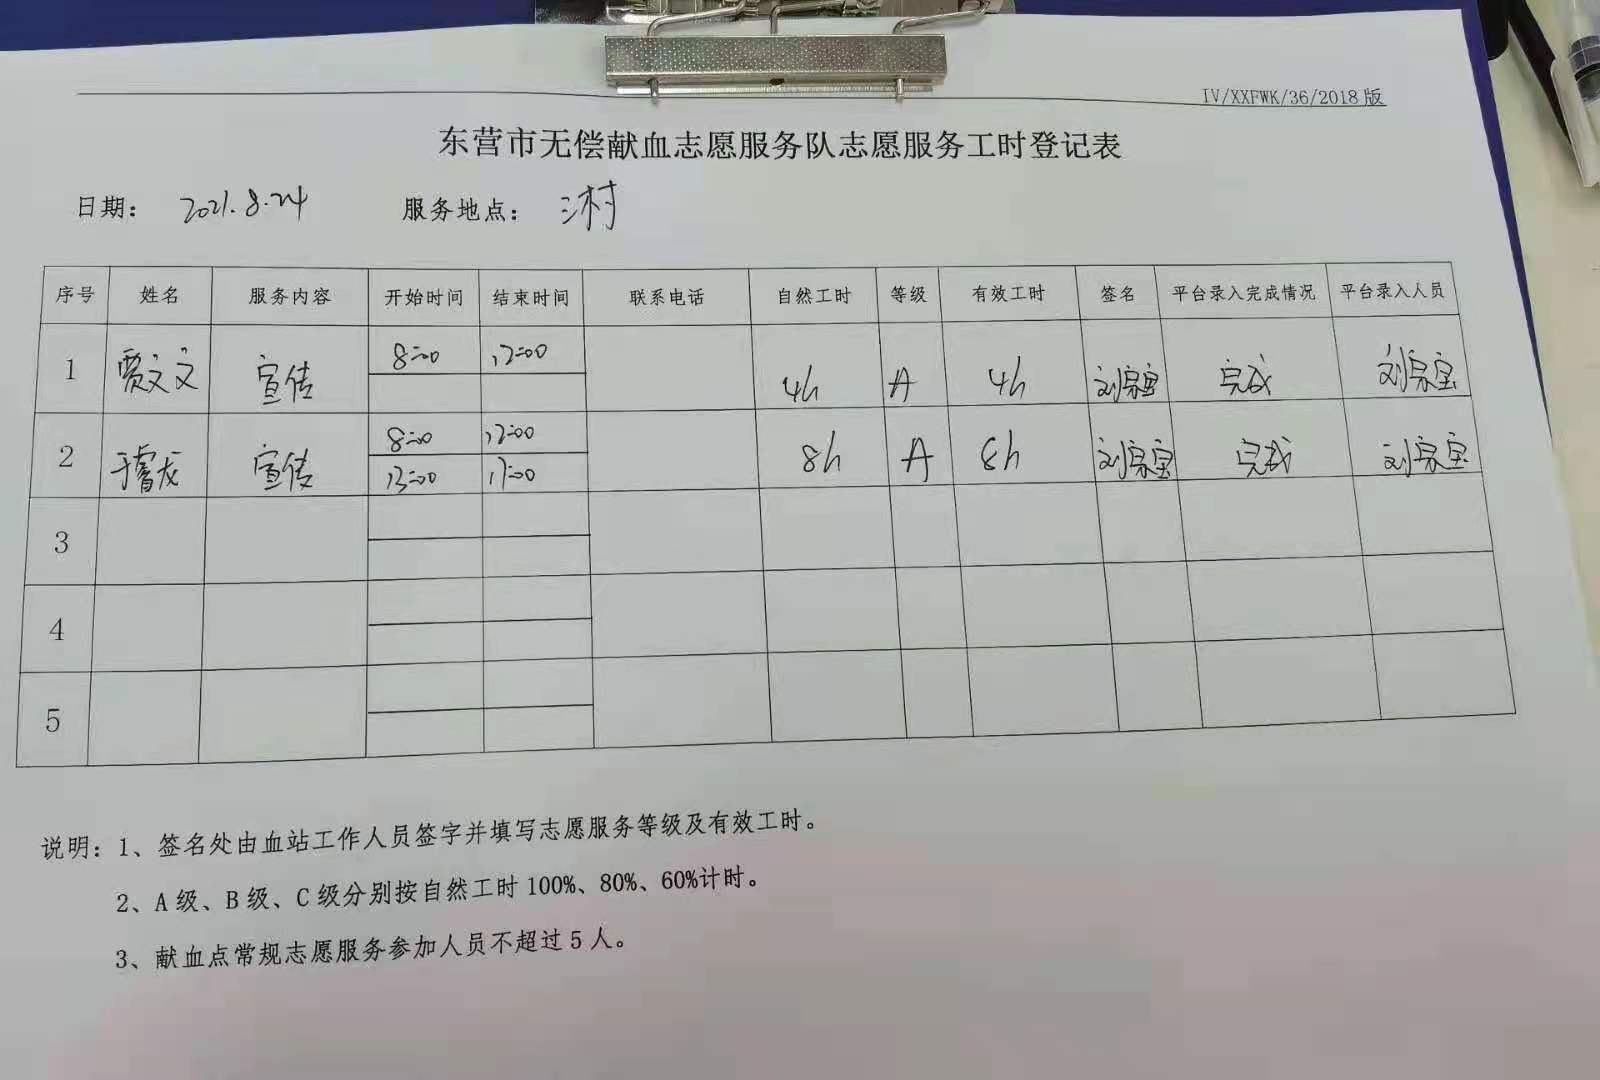 IV/XXFWK/36/2018版
东营市无偿献血志愿服务队志愿服务工时登记表
日期： 2021.8.24 服务地点： 三村
序号 姓名 服务内容 开始时间 结束时间 联系电话 自然工时 等级 有效工时 签名 平台录入完成情况 平台录入人员
1 贾文文 宣传 8:00 12:00 4h A 4h 刘家宝 完成 刘家宝
2 于睿龙 宣传 8:00 12:00 8h A 8h 刘家宝 完成 刘家宝
13:00 17:00
3
4
5
说明：1、签名处由血站工作人员签字并填写志愿服务等级及有效工时。
2、A级、B级、C级分别按自然工时100%、80%、60%计时。
3、献血点常规志愿服务参加人员不超过5人。